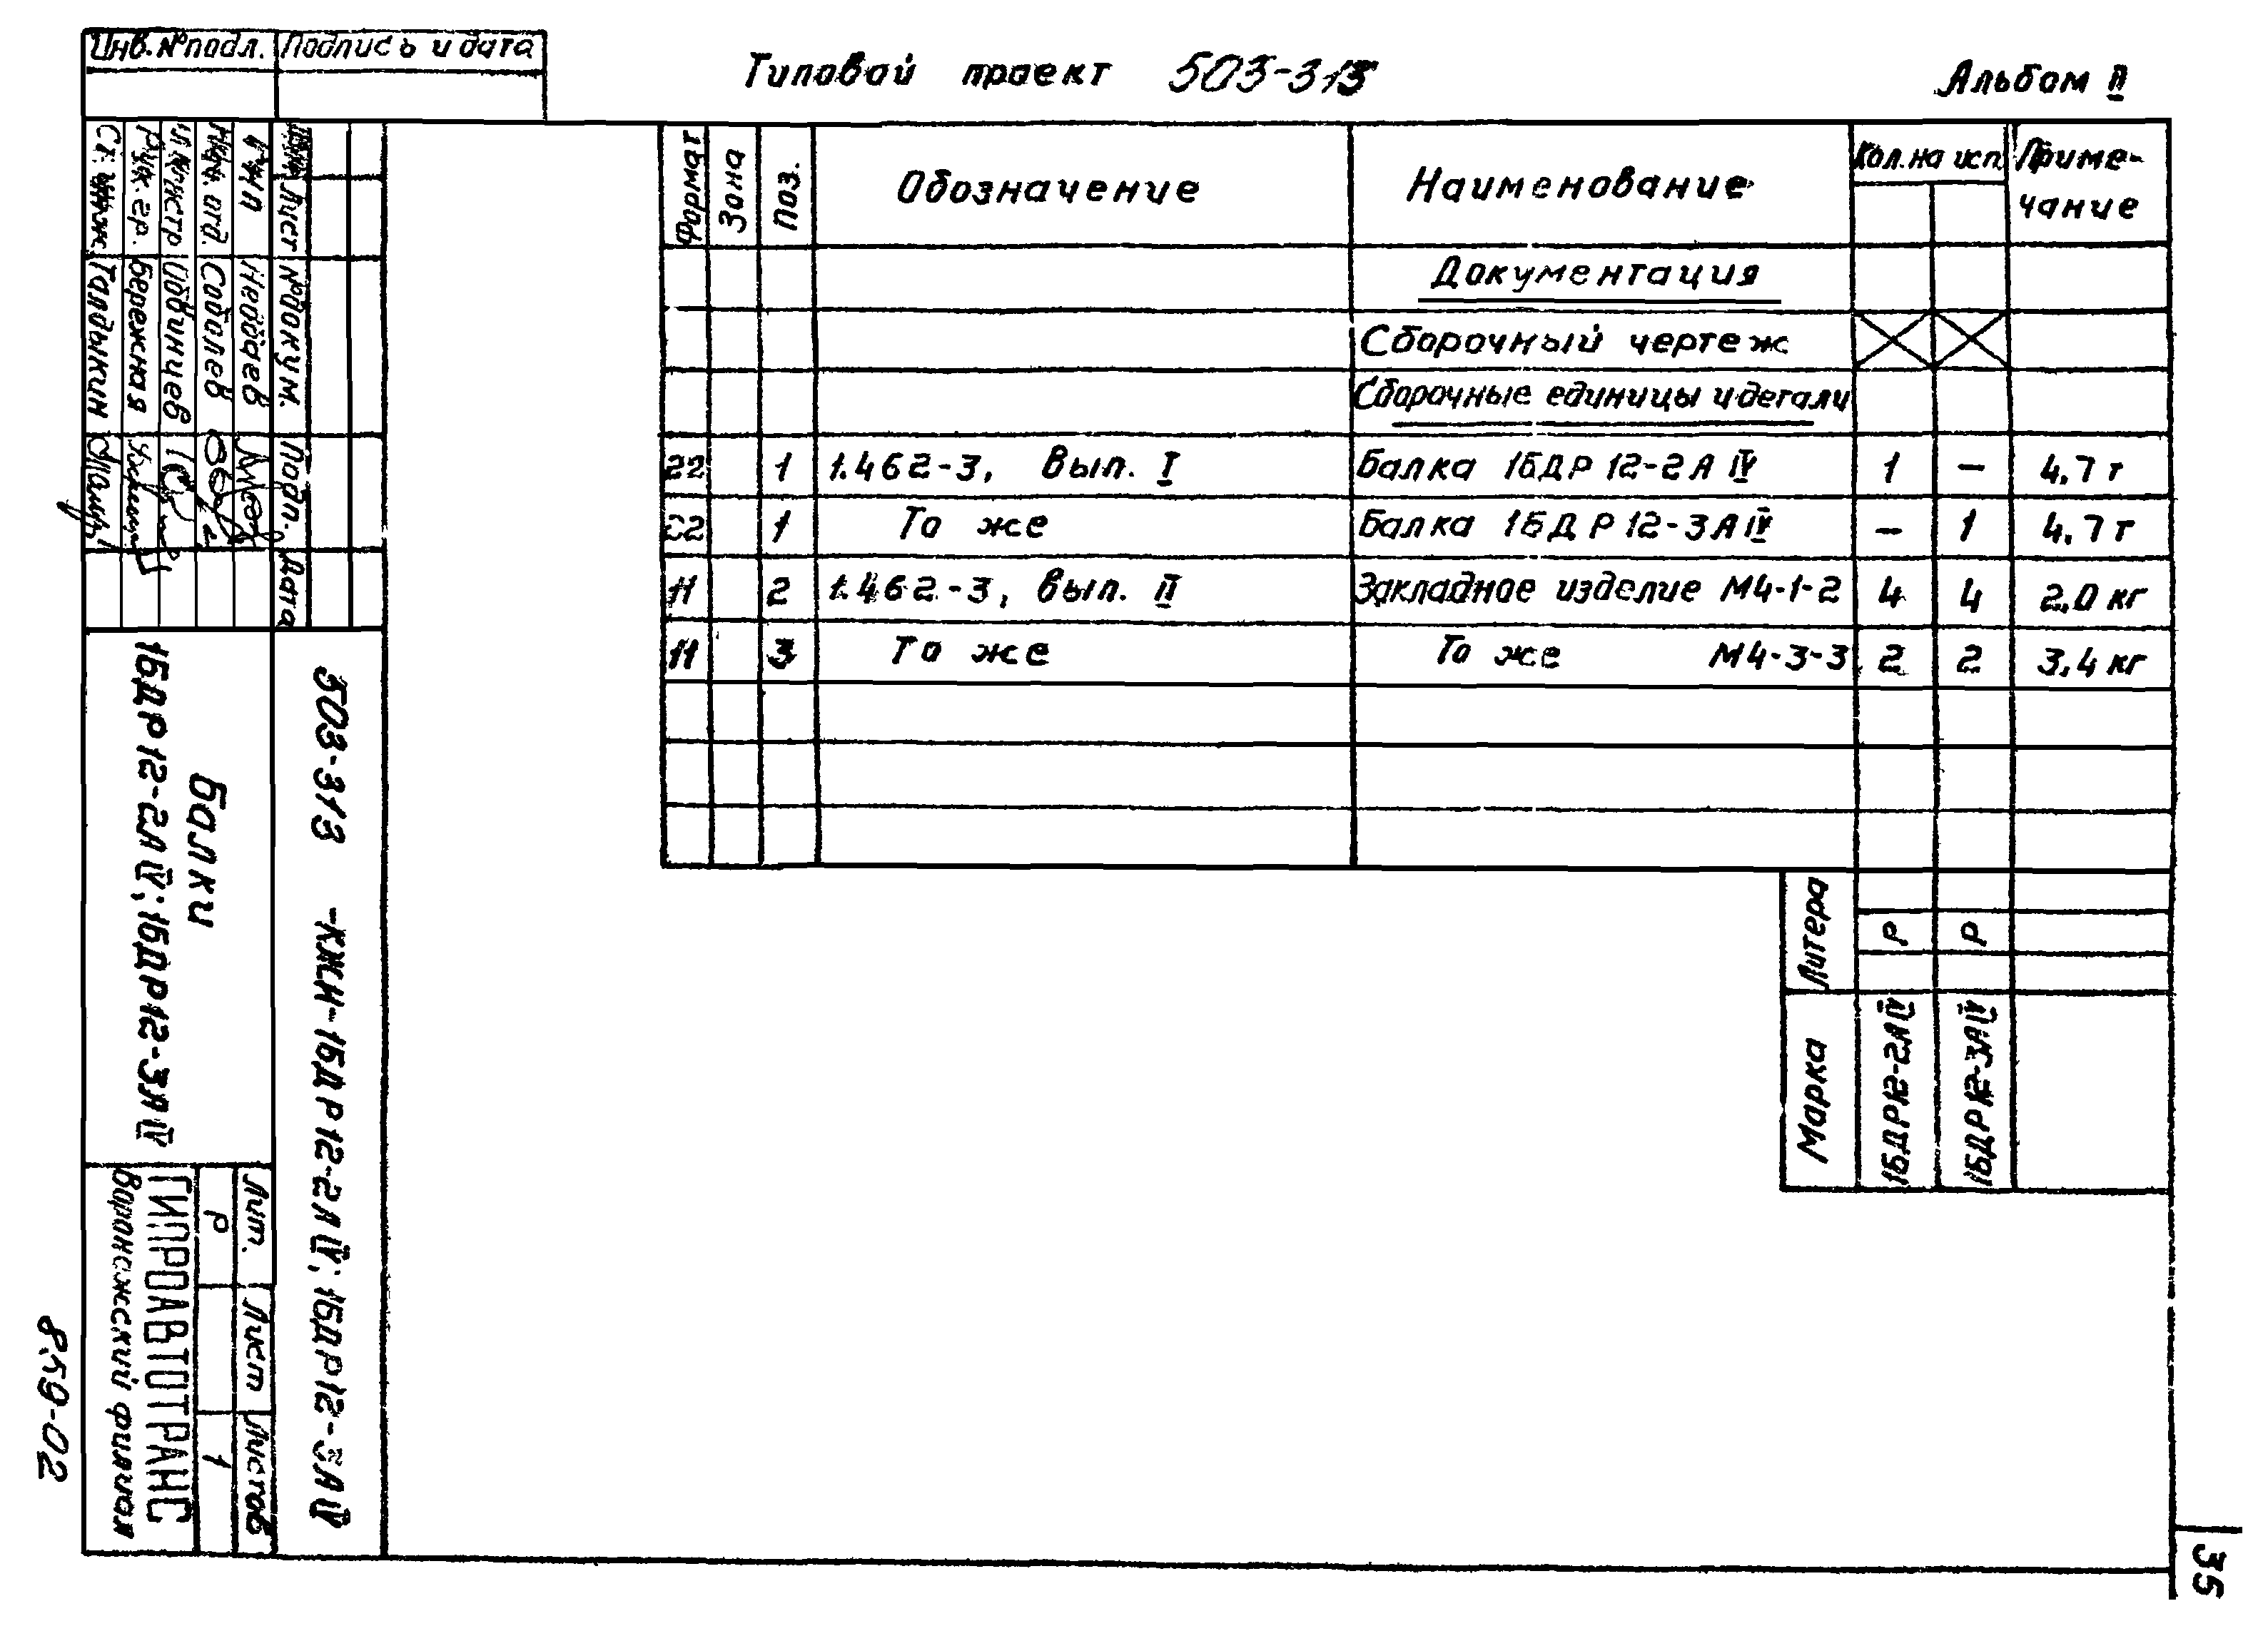 Инв.№подл. Подпись и дата
Типовой проект 503-313
Альбом II
Формат Зона Поз. Обозначение Наименование Кол. на исп. Приме-
чание
Документация
Сборочный чертеж
Сборочные единицы и детали
22 1 1.462-3, Вып. I Балка 1БДР 12-2АIV 1 – 4,7 т
22 1 То же Балка 1БДР12-3АIV – 1 4,7 т
11 2 1.462-3, Вып. II Закладное изделие М4-1-2 4 4 2,0 кг
11 3 То же То же М4-3-3 2 2 3,4 кг
Литера Р Р
Марка 1БДР12-2АIV 1БДР12-3АIV
Лист №докум. Подп. Дата
ГИП Неббаев
Нач. отд. Соболев
Гл. констр Обвинцев
Рук. гр. Бережная
Ст. инж. Талдыкин
503-313 -КЖИ-1БДР12-2АIV; 1БДР12-3АIV
Балки
1БДР12-2АIV; 1БДР12-3АIV
Лит. Лист Листов
Р 1
ГИПРОАВТОТРАНС
Воронежский филиал
859-02
35